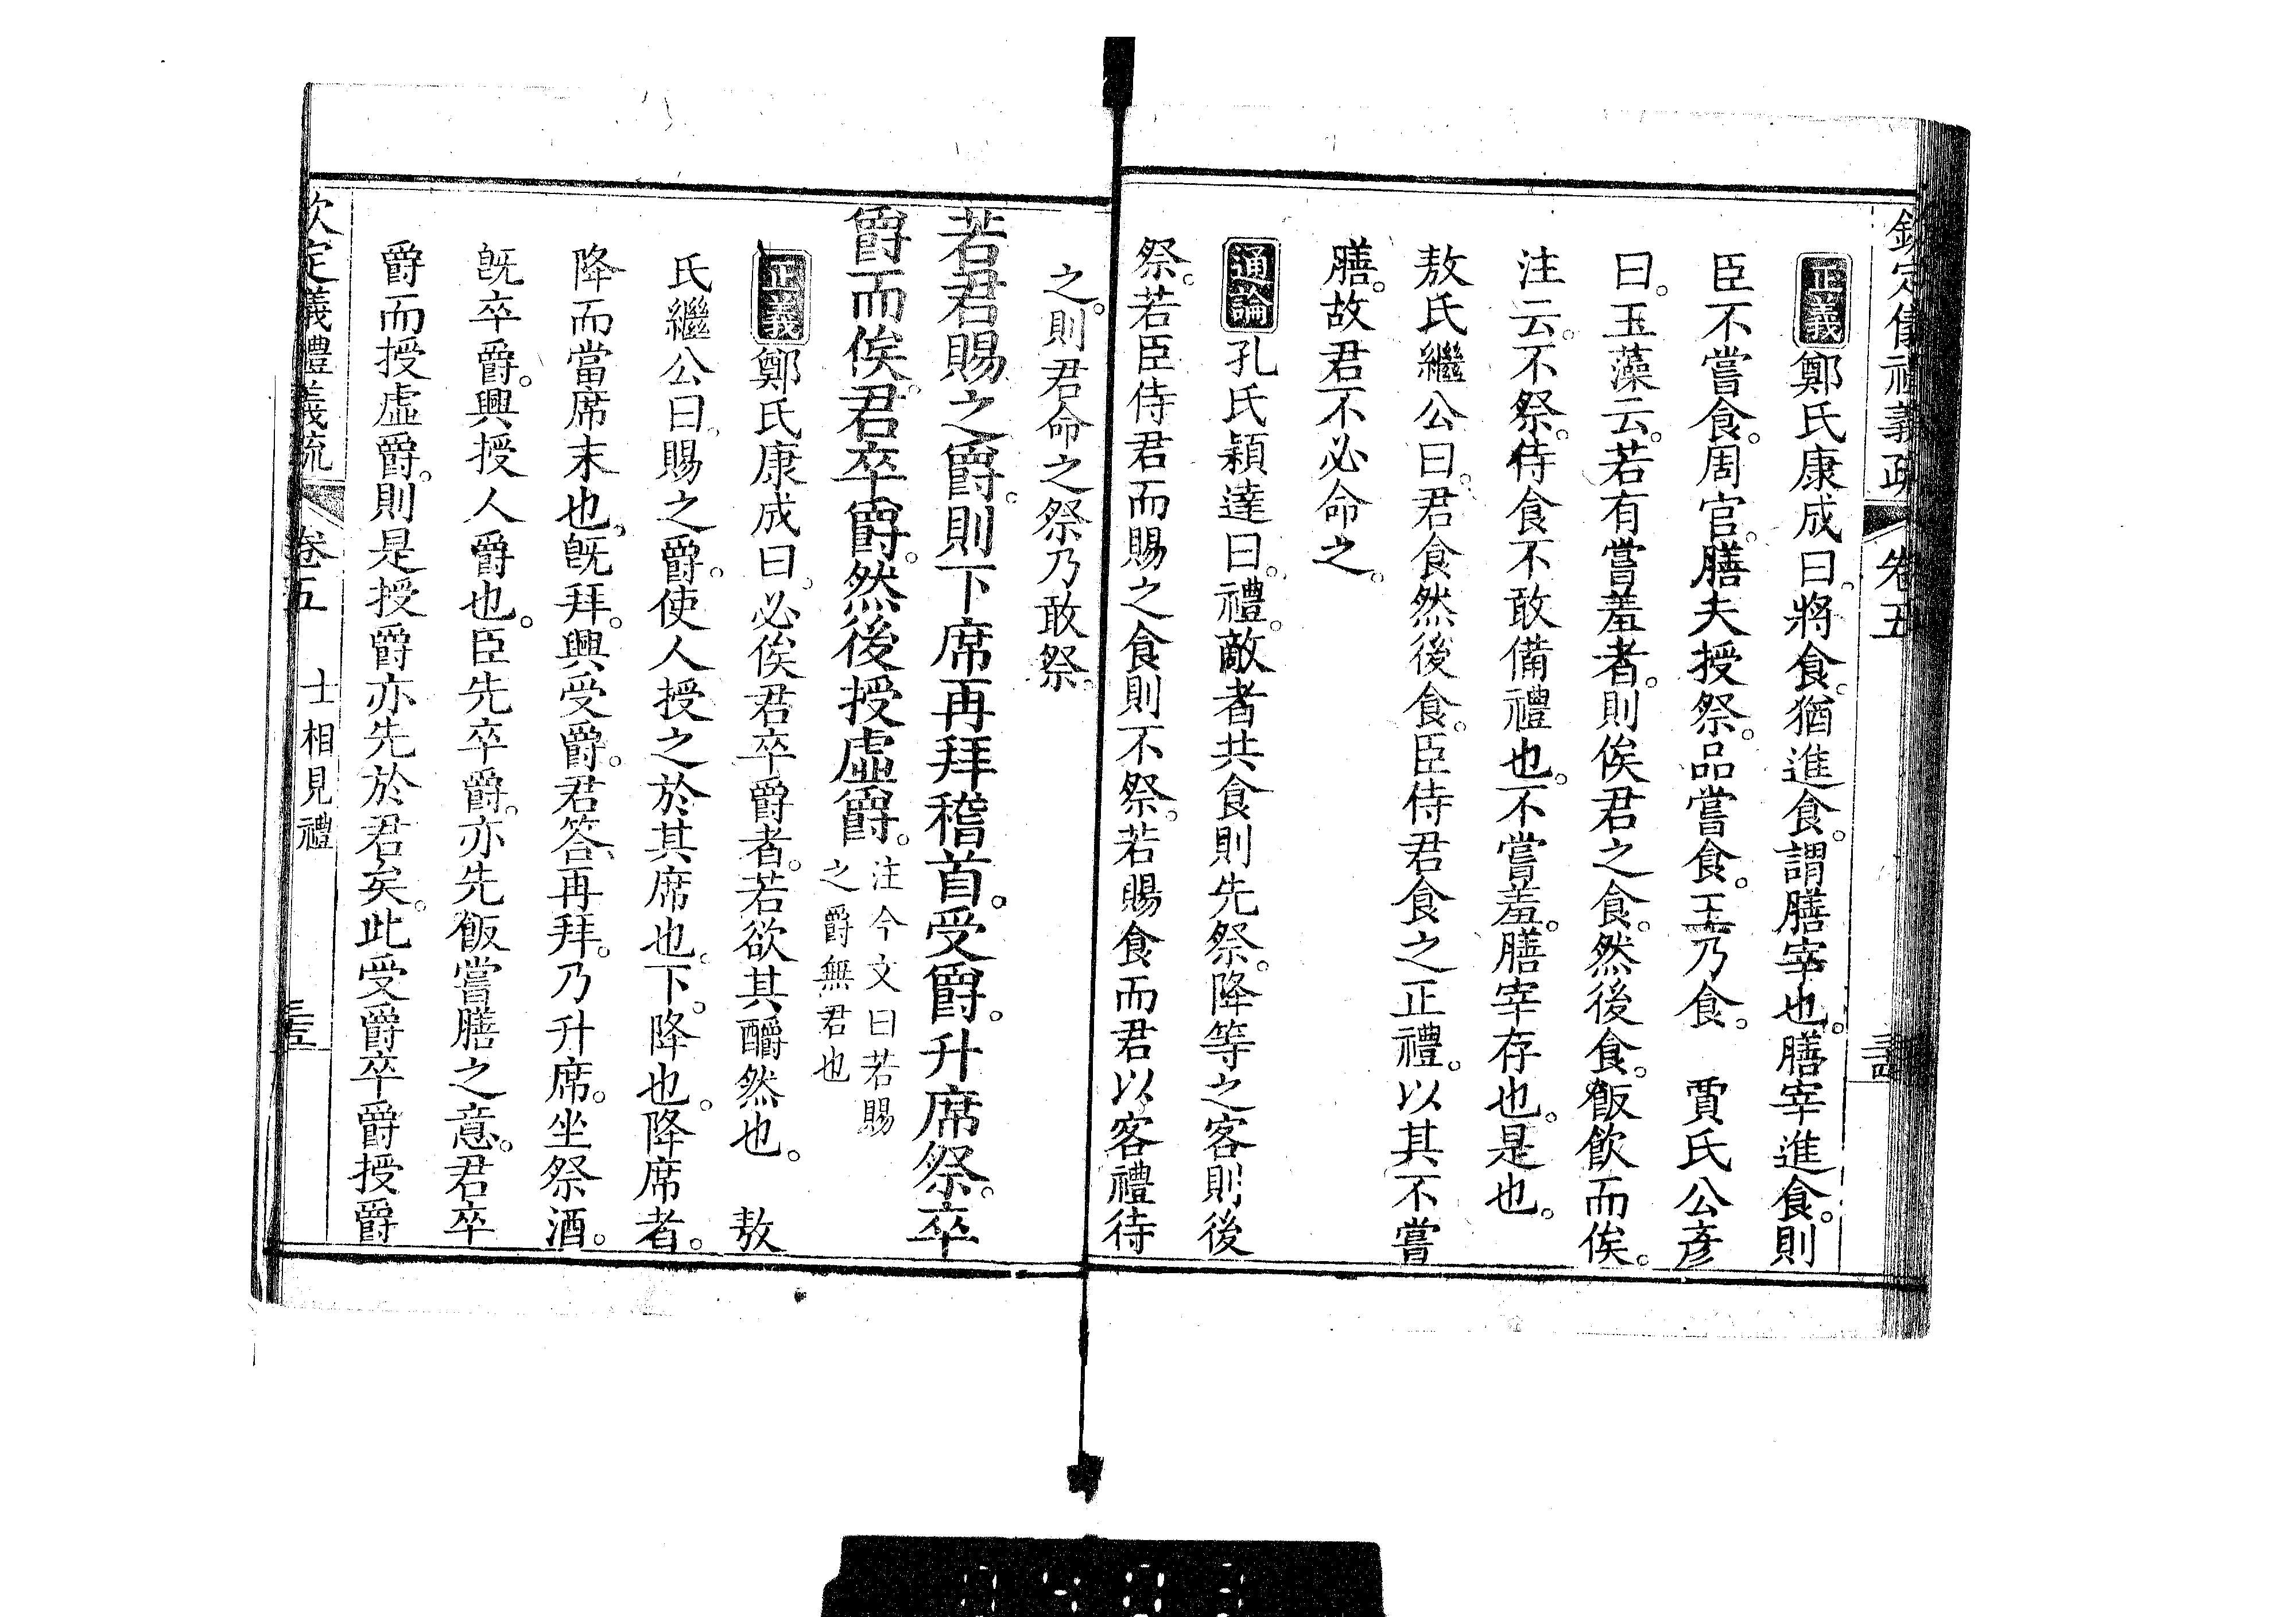 欽定儀禮義疏 卷五
正義鄭氏康成曰。將食。猶進食。謂膳宰也。膳宰進食。則
臣不嘗食。周官。膳夫授祭。品嘗食。王乃食。 賈氏公彥
曰。玉藻云。若有嘗羞者。則俟君之食。然後食。飯飲而俟。
注云。不祭。侍食不敢備禮也。不嘗羞。膳宰存也。是也。
敖氏繼公曰。君食然後食。臣侍君食之正禮。以其不嘗
膳。故君不必命之。
通論孔氏穎達曰。禮。敵者共食則先祭。降等之客則後
祭。若臣侍君而賜之食則不祭。若賜食而君以客禮待
之。則君命之祭乃敢祭。
若君賜之爵。則下席再拜稽首。受爵。升席祭。卒
爵而俟。君卒爵。然後授虛爵。注今文曰若賜
之爵無君也
正義鄭氏康成曰。必俟君卒爵者。若欲其釂然也。 敖
氏繼公曰。賜之爵。使人授之於其席也。下。降也。降席者。
降而當席末也。旣拜。興受爵。君答再拜。乃升席。坐祭酒。
旣卒爵。興授人爵也。臣先卒爵。亦先飯嘗膳之意。君卒
爵而授虛爵。則是授爵亦先於君矣。此受爵卒爵授爵
欽定儀禮義疏 卷五 士相見禮